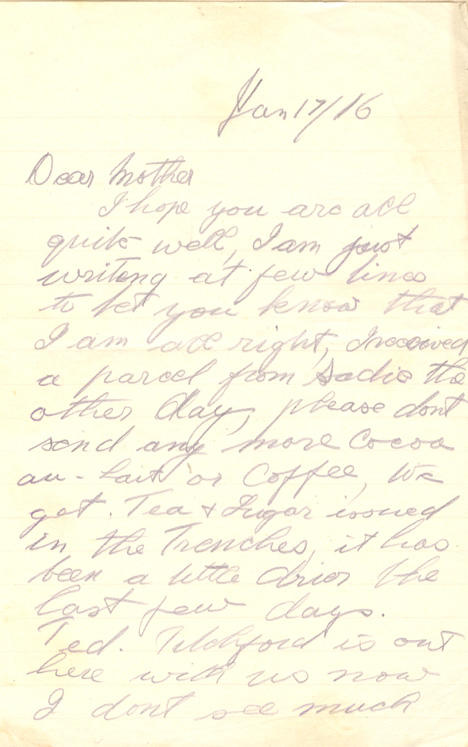 Jan 17/16
Dear Mother
I hope you are all
quite well, I am just
writing at few lines
to let you know that
I am all right, I received
a parcel from Sadie the
other day, please dont
send any more Cocoa
au-Lait or Coffee, We
get. Tea & Sugar issued
in the Trenches, it has
been a little drier the
last few days.
Ted. is out
here with us now
I dont see much